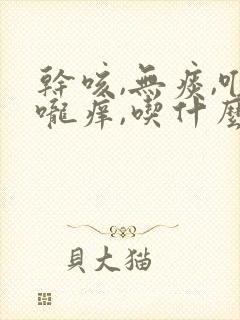 幹咳,無痰,
嚨癢,喫什麼
貝大猫